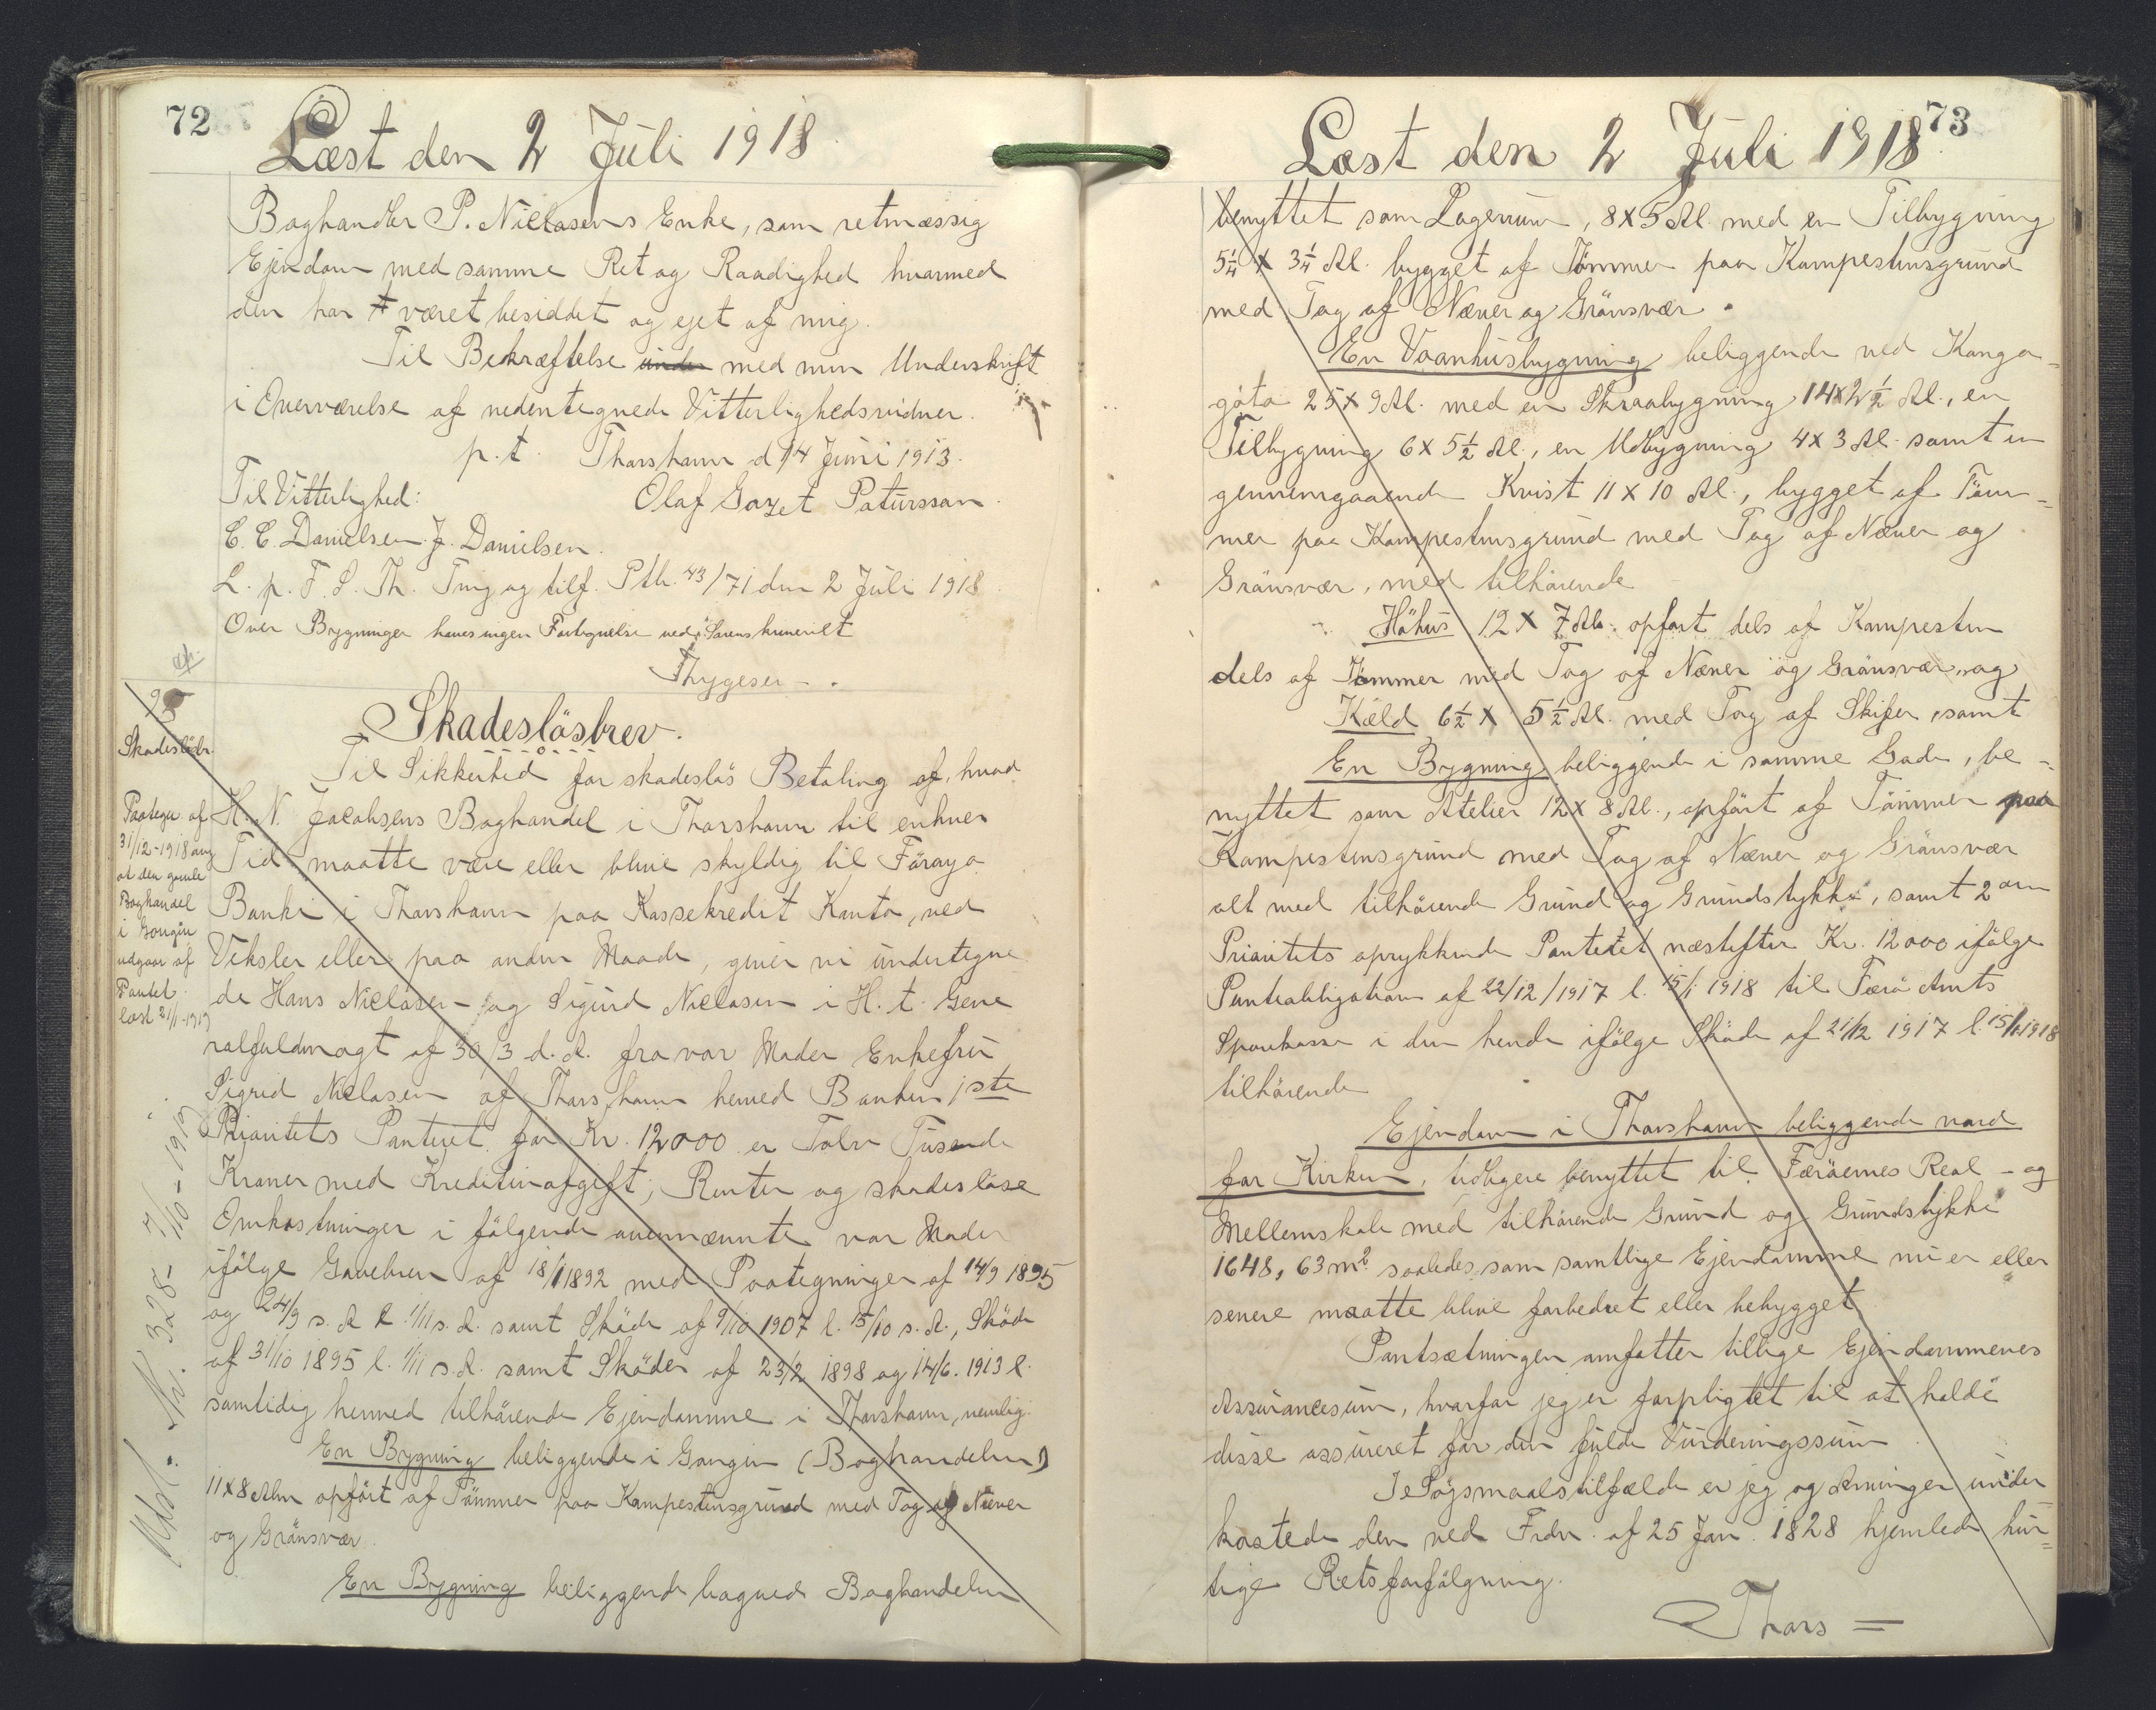 72
Læst den 2 Juli 1918
Boghandler P. Niclasens Enke, som retmæssig
Ejendom med samme Ret og Raadighed hvormed
den har været besiddet og ejet af mig.
Til Bekræftelse under med min Underskrift
i Overværelse af nedentegnede Vitterlighedsvidner.
p.t. Thorshavn d 14 Juni 1913.
Til Vitterlighed: Olaf Gazet Patursson.
E. E. Danielsen. J. Danielsen.
L. p. F. S. Th. Ting og tilf. Ptb. 43/71 den 2 Juli 1918
Over Bygninger haves ingen Fortegnelse ved Sorenskriveriet
Thygesen.
Skadeslösbrev.
Til Sikkerhed for skadeslös Betaling af, hvad
H. N. Jacobsens Boghandel i Thorshavn til enhver
Tid maatte være eller blive skyldig til Föroya
Banki i Thorshavn paa Kassekredit Konto, ved
Veksler eller paa anden Maade, giver vi undertegne
de Hans Niclasen og Sigurd Niclasen i H. t. Gene
ralfuldmagt af 30/3 d. A. fra vor Moder Enkefru
Sigrid Niclasen af Thorshavn herved Banken 1ste
Prioritets Panteret for Kr. 12000 er Tolv Tusende
Kroner med Kreditivafgift, Renter og skadeslöse
Omkostninger i fölgende ovennævnte vor Moder
ifölge Gavebrev af 18/1 1892 med Paategninger af 14/9 1895
og 24/9 s. A l. 1/11 s. A. samt Sköde af 9/10 1907 l. 15/10 s. A., Sköde
af 31/10 1895 l. 1/11 s. A. samt Sköder af 23/2 1898 og 14/6. 1913 l.
samtidig hermed tilhörende Ejendomme i Thorshavn, nemlig:
En Bygning beliggende i Gongin (Boghandelen)
11x8 Alen opfört af Tömmer paa Kampestensgrund med Tag af Næver
og Grönsvær.
En Bygning beliggende bagved Boghandelen
Skadeslöbr.
Paategn af
31/12-1918 ang
at den gamle
Boghandel
i Gongin
udgaar af
Pantet.
læst 21/1-1919
Udsl. Nr. 328 - 7/10 - 1919
73
Læst den 2 Juli 1918.
benyttet som Lagerrum, 8x5 Al. med en Tilbygning
5¼ x 3¼ Al. bygget af Tömmer paa Kampestensgrund
med Tag af Næver og Grönsvær.
En Vaanhusbygning beliggende ved Konga-
göta 25x9 Al. med en Skraabygning 14x2½ Al., en
Tilbygning 6x5½ Al., en Udbygning 4x3 Al. samt en
gennemgaaende Kvist 11x10 Al., bygget af Töm=
mer paa Kampestensgrund med Tag af Næver og
Grönsvær, med tilhörende
Höhus 12 x 7 Al. opfört dels af Kampesten
dels af Tömmer med Tag af Næver og Grönsvær, og
Kæld 6½ x 5½ Al. med Tag af Skifer, samt
En Bygning beliggende i samme Gade, be=
nyttet som Atelier 12x8 Al., opfört af Tömmer paa
Kampestensgrund med Tag af Næver og Grönsvær
alt med tilhörende Grund og Grundstykke, samt 2den
Prioritets oprykkende Panteret næstefter Kr. 12000 ifölge
Panteobligation af 22/12/1917 l. 15/1 1918 til Færö Amts
Sparekasse i den hende ifölge Sköde af 21/12 1917 l. 15/1 1918
tilhörende
Ejendom i Thorshavn beliggende nord
for Kirken, tidligere benyttet til Færöernes Real - og
Mellemskole med tilhörende Grund og Grundstykke
1648,63 m² saaledes som samtlige Ejendomme nu er eller
senere maatte blive forbedret eller bebygget
Pantsætningen omfatter tillige Ejendommenes
Assurancesum, hvorfor jeg er forpligtet til at holde
disse assureret for den fulde Vurderingssum
I Sögsmaalstilfælde er jeg og Arvinger under
kastede den ved Frdn. af 25 Jan. 1828 hjemlede hur=
tige Retsforfölgning.
Thors=